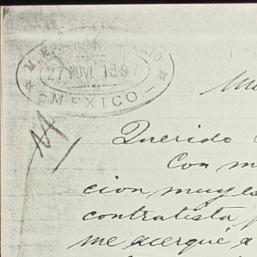 27 NOV. 1897
MEXICO
Me
Querido
Con m
cion muy es
contratista p
me acerqué a